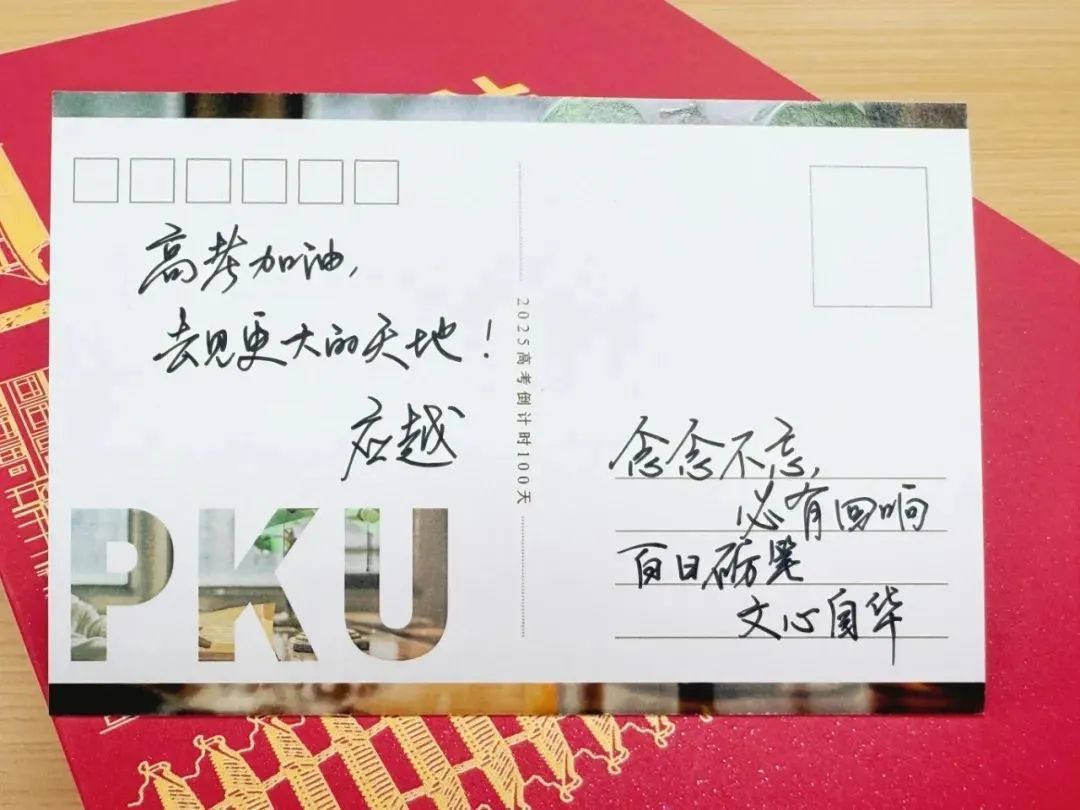 高考加油,
去见更大的天地!
应越
PKU
2025高考倒计时100天
念念不忘,
必有回响
百日砺笔
文心自华